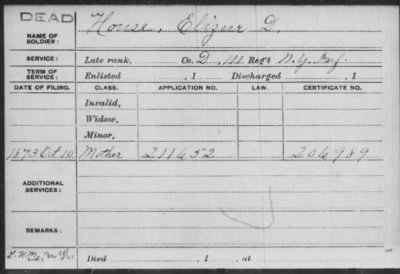 DEAD
House, Elizur D.
NAME OF
SOLDIER:
SERVICE: Late rank, Co. D, 111 Reg't N.Y. Inf.
TERM OF
SERVICE: Enlisted , 1 Discharged , 1
DATE OF FILING. CLASS. APPLICATION NO. LAW. CERTIFICATE NO.
Invalid,
Widow,
Minor,
1873 Oct 10. Mother 211652 206989
ADDITIONAL
SERVICES:
REMARKS:
Died , 1 , at